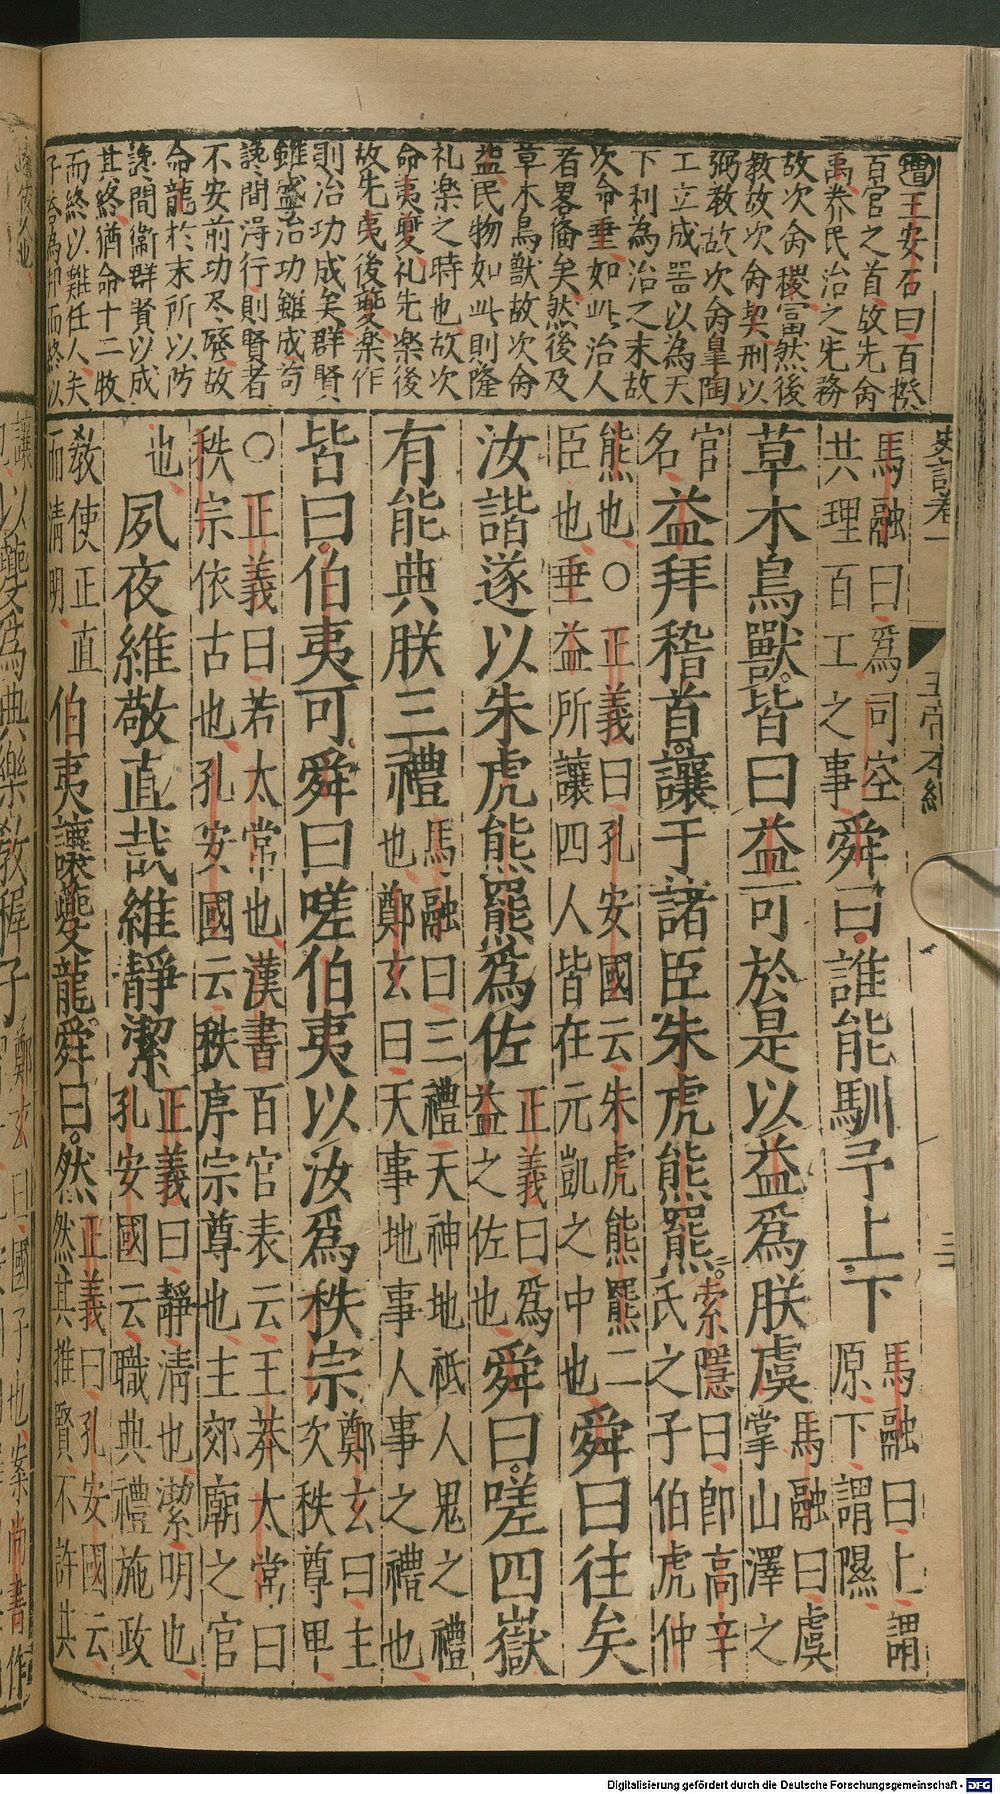 增王安石曰百揆
百官之首故先命
禹養民治之先務
故次命稷富然後
教故次命契刑以
弼教故次命臯陶
工立成噐以為天
下利為治之末故
次命垂如此治人
者畧備矣然後及
草木鳥獸故次命
益民物如此則隆
礼楽之時也故次
命夷夔礼先楽後
故先夷後夔楽作
則治功成矣群賢
雖盛治功雖成苟
讒間得行則賢者
不安前功尽廢故
命龍於末所以防
讒間衞群賢以成
其終猶命十二牧
而終以難任人夫
子答為邦而終以
史記卷一
五帝本紀
三
馬融曰爲司空
共理百工之事舜曰誰能馴予上下馬融曰上謂
原下謂隰
草木鳥獸皆曰益可於是以益爲朕虞馬融曰虞
掌山澤之
官
名益拜稽首讓于諸臣朱虎熊羆索隱曰即高辛
氏之子伯虎仲
熊也○正義曰孔安國云朱虎熊羆二
臣也垂益所讓四人皆在元凱之中也舜曰往矣
汝諧遂以朱虎熊羆爲佐正義曰爲
益之佐也舜曰嗟四嶽
有能典朕三禮馬融曰三禮天神地祇人鬼之禮
也鄭玄曰天事地事人事之禮也
皆曰伯夷可舜曰嗟伯夷以汝爲秩宗鄭玄曰主
次秩尊卑
○正義曰若太常也漢書百官表云王莽太常曰
秩宗依古也孔安國云秩序宗尊也主郊廟之官
也夙夜維敬直哉維靜潔正義曰靜清也潔明也
孔安國云職典禮施政
教使正直
而清明伯夷讓夔龍舜曰然正義曰孔安國云
然其推賢不許共
Digitalisierung gefördert durch die Deutsche Forschungsgemeinschaft - DFG